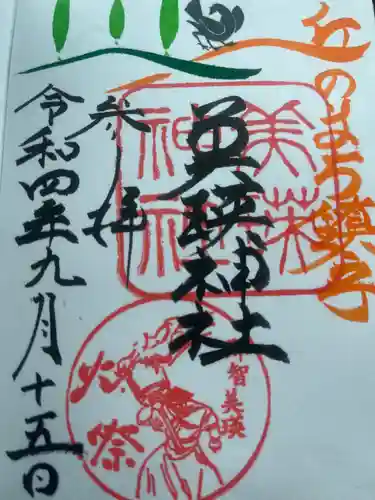 丘のまち鎮守
美瑛神社
参拝
令和四年九月十五日
美瑛
神社
智美瑛
火祭